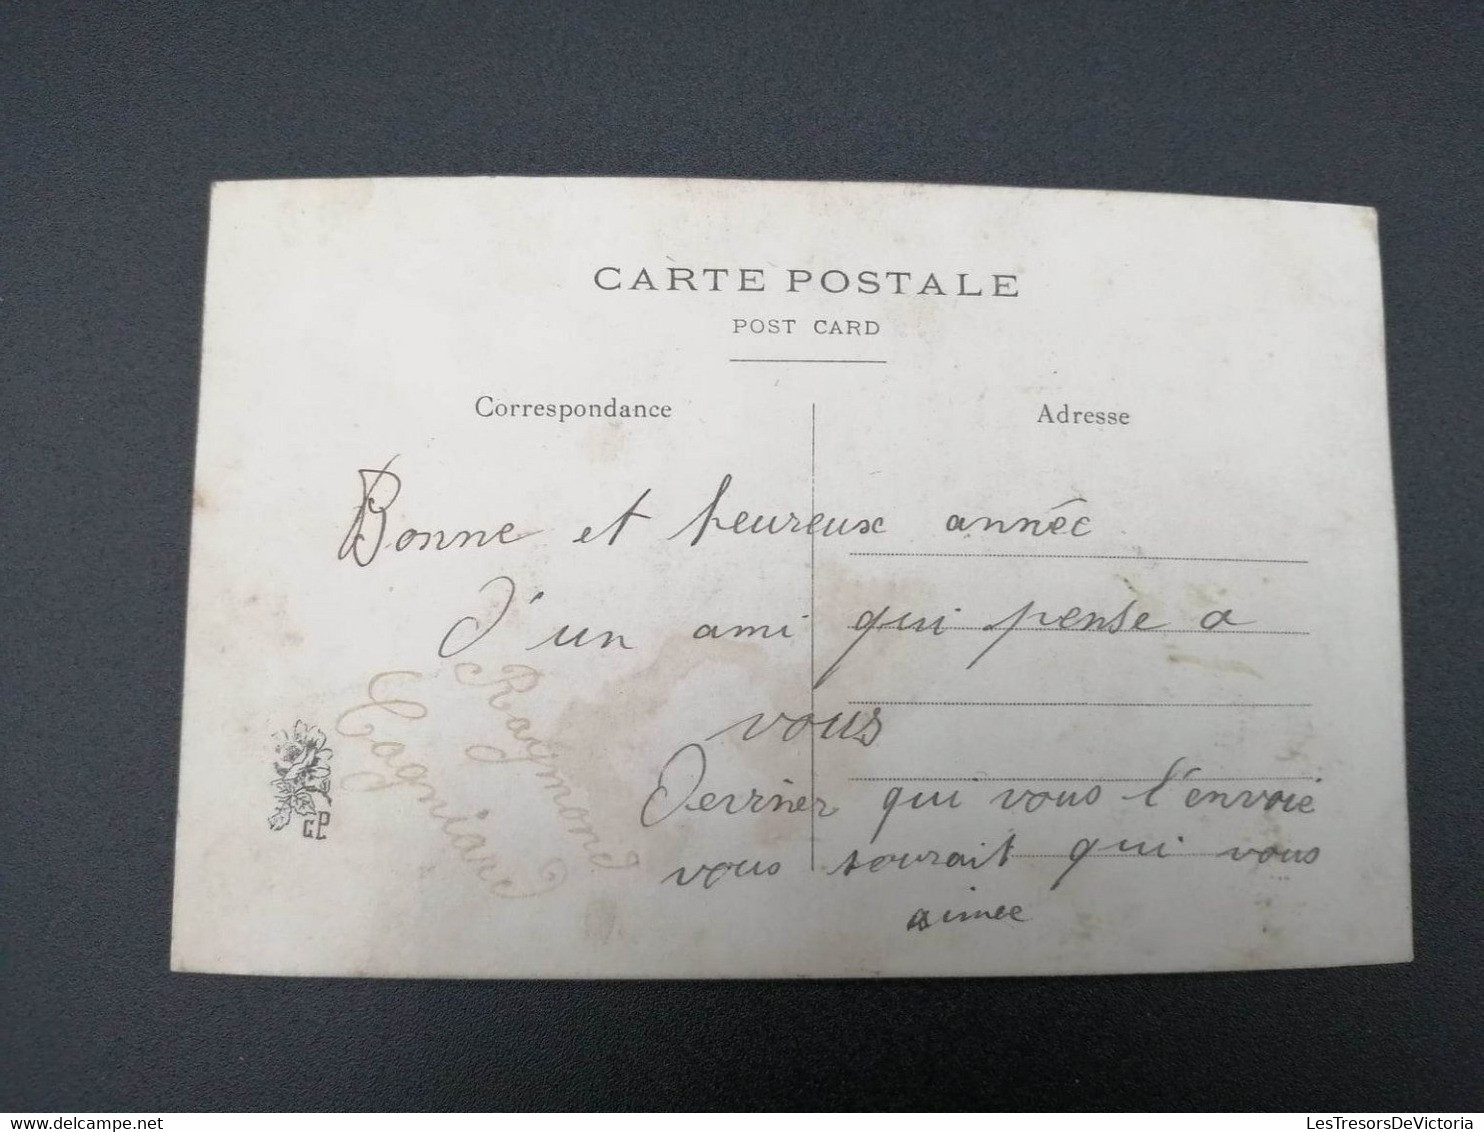 CARTE POSTALE
POST CARD
Correspondance
Adresse
Bonne et heureux année
D'un ami qui pense a
vous
Raymond
Cogniard
Derrier qui vous l'envoie
vous sourait qui vous
aimee
LesTresorsDeVictoria